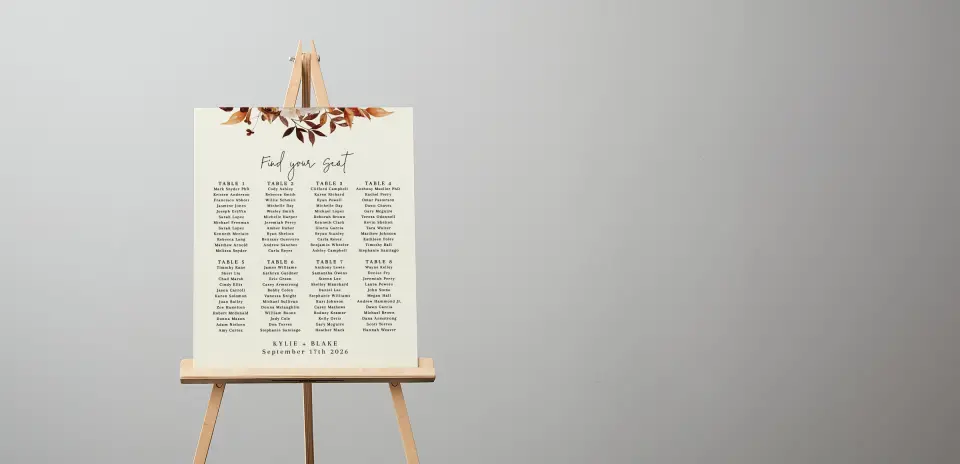 Find your seat
TABLE 1
Mark Snyder PhD
Kristen Anderson
Francisco Abbott
Jasmine Jones
Joseph Griffin
Sarah Lopez
Michael Freeman
Sarah Lopez
Kenneth Morales
Rebecca Long
Matthew Arnold
Melissa Snyder
TABLE 2
Cody Ashley
Rebecca Smith
Willie Schmitt
Michelle Day
Wesley Smith
Michelle Harper
Jeremiah Perry
Amber Baker
Ryan Shelton
Brianna Guerrero
Andrew Sanchez
Carla Reyes
TABLE 3
Clifford Campbell
Karen Richard
Ryan Powell
Michelle Day
Michael Lopez
Deborah Brown
Kenneth Clark
Gloria Garcia
Bryan Stanley
Carla Reyes
Benjamin Wheeler
Ashley Campbell
TABLE 4
Rachel Perry
Omar Patterson
Dawn Chavez
Gary Mcguire
Teresa
Kevin Shelton
Tara Walter
Matthew Johnson
Kathleen Foley
Timothy Hall
Stephanie Santiago
TABLE 5
Timothy Kane
Sheri Liu
Chad Marsh
Cindy Ellis
Jason Carroll
Karen Solomon
Joan Bailey
Zoe Hamilton
Robert McDonald
Donna Mason
Adam Nielsen
Amy Cortez
TABLE 6
James Williams
Kathryn Gardner
Eric Green
Casey Armstrong
Bobby Colon
Vanessa Knight
Michael Sullivan
Donna Mclaughlin
William Moore
Judy Cole
Don Torres
Stephanie Santiago
TABLE 7
Anthony Lewis
Samantha Owens
Steven Lee
Shelley Blanchard
Daniel Lee
Stephanie Williams
Kurt Johnson
Casey Mathews
Rodney Kramer
Kelly Davis
Gary Mcguire
Heather Mack
TABLE 8
Wayne Kelley
Denise Fry
Jeremiah Perry
Laura Powers
John Stone
Megan Hall
Andrew Hammond Jr.
Dawn Garcia
Michael Brown
Dana Armstrong
Scott Torres
Hannah Weaver
KYLIE + BLAKE
September 17th 2026